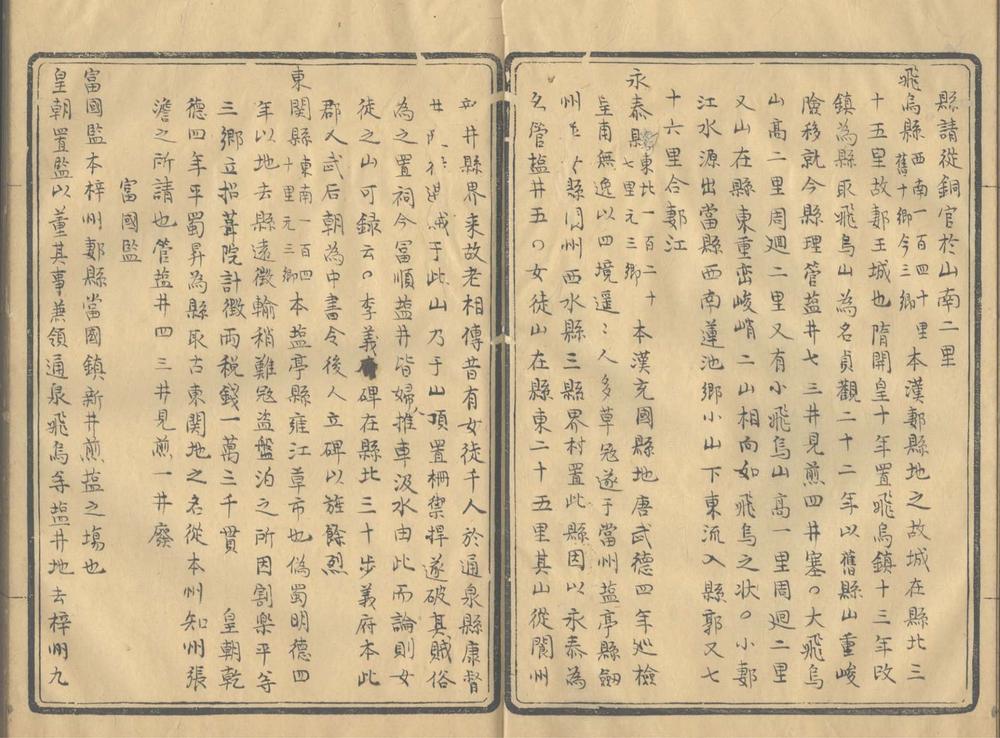 縣請從銅官於山南二里
飛烏縣西南一百四十里舊十鄉今三鄉本漢郪縣地之故城在縣北三
十五里故郪王城也隋開皇十年置飛烏鎮十三年改
鎮為縣取飛烏山為名貞觀二十二年以舊縣山重峻
險移就今縣理管塩井七三井見煎四井塞〇大飛烏
山高二里周迴二里又有小飛烏山高一里周迴二里
又山在縣東重巒峻峭二山相向如飛烏之狀〇小郪
江水源出當縣西南蓮池鄉小山下東流入縣郭又七
十六里合郪江
永泰縣東北一百二十七里元三鄉本漢充國縣地唐武德四年巡檢
皇甫無逸以四境遥〻人多草宼遂于當州塩亭縣劒
州 縣 州西水縣三縣界村置此縣因以永泰為
名管塩井五〇女徒山在縣東二十五里其山從閬州
井縣界来故老相傳昔有女徒千人於通泉縣康督
于此山乃于山頂置柵禦捍遂破其賊俗
為之置祠今富順塩井皆婦人推車汲水由此而論則女
徒之山可録云〇李義 碑在縣北三十步義府本此
郡人武后朝為中書令後人立碑以旌餘烈
東關縣東南一百四十里元三鄉本塩亭縣雍江草市也偽蜀明德四
年以地去縣遠徵輸稍難宼盗盤泊之所因割樂平等
三鄉立招葺院計徵両税錢一萬三千貫 皇朝乾
德四年平蜀昇為縣取古東關地之名從本州知州張
澹之所請也管塩井四三井見煎一井廢
富國監
富國監本梓州郪縣富國鎮新井煎塩之塲也
皇朝置監以董其事兼領通泉飛烏等塩井地去梓州九